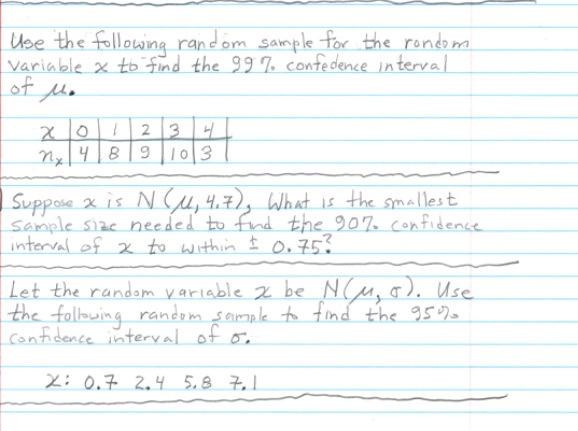 Use the following random sample for the random
variable x to find the 99% confedence interval
of μ.
x | 0 | 1 | 2 | 3 | 4 |
nx | 4 | 8 | 9 | 10 | 3 |
Suppose x is N(μ, 4.7), What is the smallest
sample size needed to find the 90% confidence
interval of x to within ± 0.75?
Let the random variable x be N(μ, σ). Use
the following random sample to find the 95%
confidence interval of σ.
x: 0.7 2.4 5.8 7.1